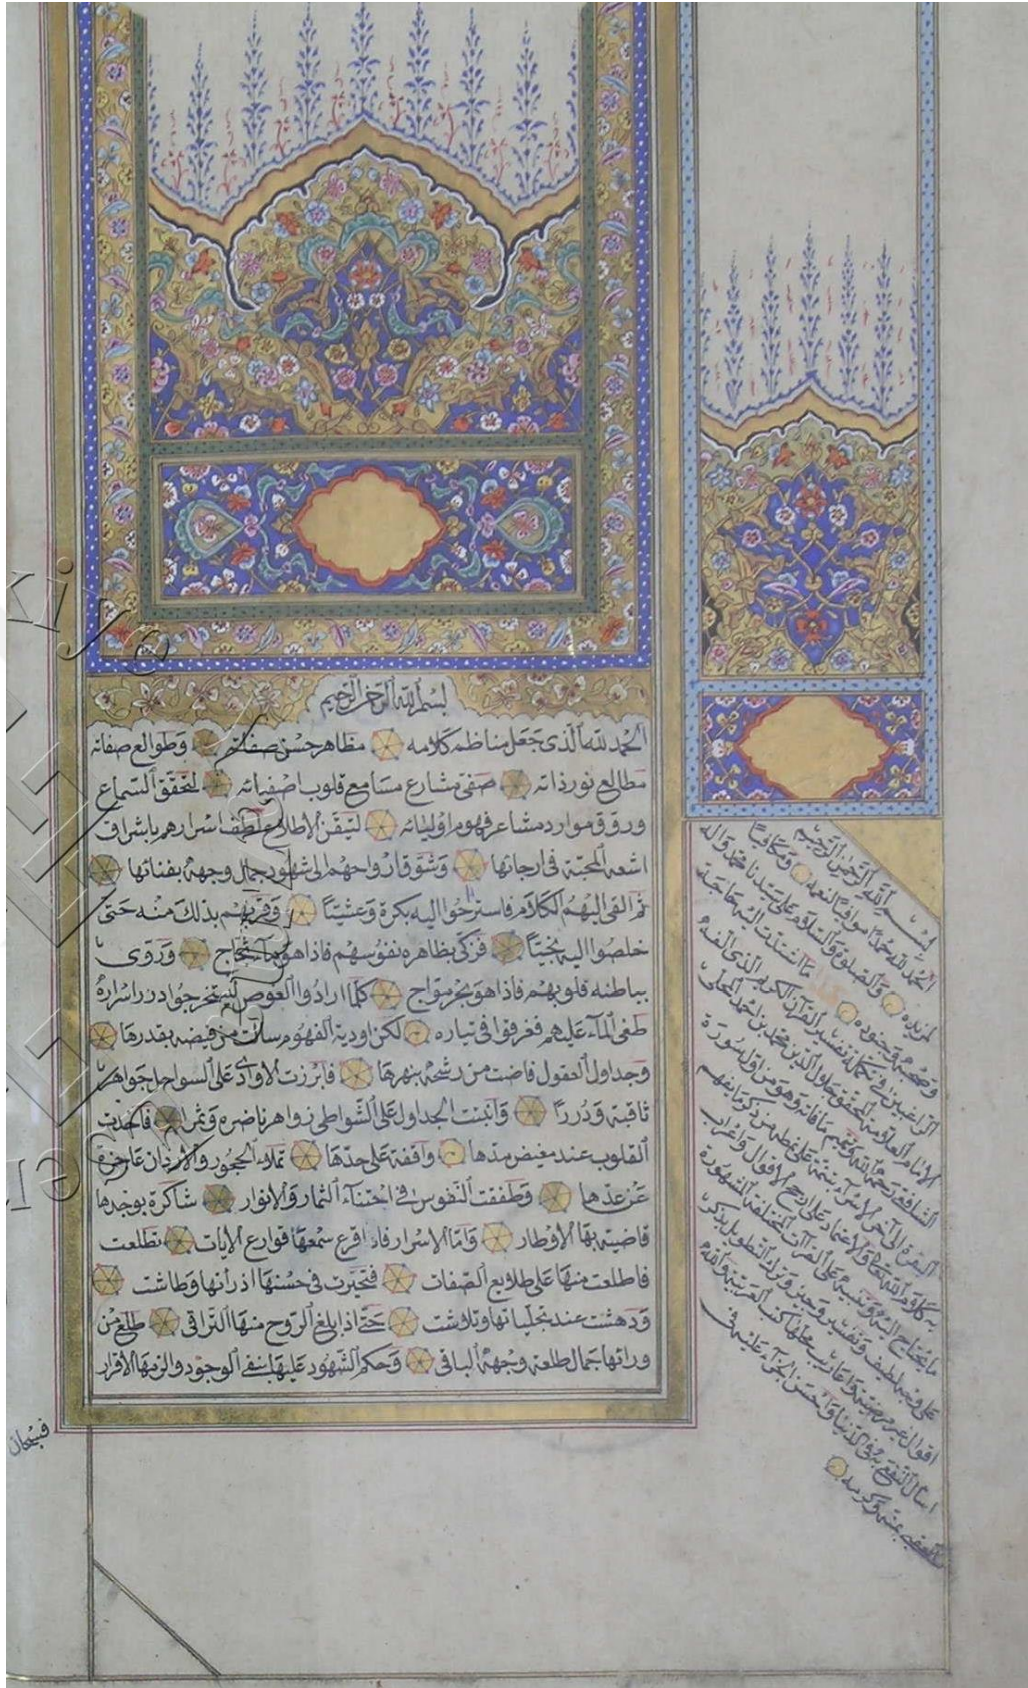 بسم الله الرحمن الرحيم
الحمد لله الذى جعل مناظم كلامه مظاهر حسن صفاته وطوالع صفاته
مطالع نور ذاته صفى مشارع مسامع قلوب اصفيائه لتحقق السماع
وروق موارد مشاعر فهوم اوليائه لتيقن الاطلاع لطف اسرارهم باشراق
اشعة المحبة فى ارجائها وشوق ارواحهم الى شهود جمال وجهه بفنائها
ثم القى اليهم الكلام فاسترحوا اليه بكرة وعشيا وقربهم بذلك منه حتى
خلصوا اليه نجيا فزكى بظاهره نفوسهم فاذا هو ماء ثجاج وروى
بباطنه قلوبهم فاذا هو بحر مواج كلما ارادوا الغوص ليستخرجوا درر اسراره
طغى الماء عليهم فغرقوا فى تياره لكن اودية الفهوم سالت من فيضه بقدرها
وجداول العقول فاضت من رشحه بنهرها فابرزت الاوادى على السواحل جواهر
ثاقبة ودررا وانبتت الجداول على الشواطى زواهر ناضرة وثمرا فاخذت
القلوب عند مغيض مدها واقفة على حدها تملاء الحجور والاردان عاجزة
عن عدها وطفقت النفوس فى اجتناء الثمار والانوار شاكرة بوجدها
قاضية بها الاوطار واما الاسرار فاذا قرع سمعها قوارع الايات تطلعت
فاطلعت منها على طلايع الصفات فتحيرت فى حسنها اذ رأتها وطاشت
ودهشت عند تجلياتها وتلاشت حتى اذا بلغ الروح منها التراقى طلع من
ورائها جمال طلعة وجهه الباقى وحكم الشهود عليها بنفى الوجود والزمها الاقرار
فسبحان
بسم الله الرحمن الرحيم
الحمد لله حمدا موافيا لنعمه ومكافيا
لمزيده والصلوة والسلام على سيدنا محمد واله
وصحبه وجنوده ما اشتدت اليه حاجة
الراغبين فى تكملة تفسير القرآن الكريم الذى الفه
الامام العلامة المحقق جلال الدين محمد بن احمد المحلى
الشافعى رحمه الله وتتميم ما فاته وهو من اول سورة
البقرة الى آخر الاسراء بتتمة على نمطه من ذكر ما يفهم
به كلام الله تعالى والاعتماد على ارجح الاقوال واعراب
ما يحتاج اليه وتنبيه على القرآات المختلفة المشهورة
على وجه لطيف وتعبير وجيز وترك التطويل بذكر
اقوال غير مرضية واعاريب محلها كتب العربية والله
اسأل النفع به فى الدنيا واحسن الجزاء عليه فى
العقبى بمنه وكرمه